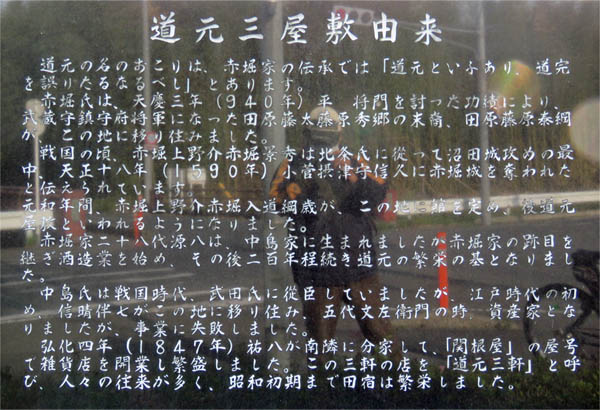 道元三屋敷由来
道元の名のおこりは、赤堀家の伝承では「道元といふあり、道完
を誤りたるなるべし」とあります。
赤堀氏は、天慶三年（940年）平 将門を討った功績により、
武蔵守鎮守府将軍になった田原藤太藤原秀郷の末裔、田原藤原泰綱
がこの地に移り住みました。
戦国の頃、赤堀上野介赤堀景秀は北条氏に従って沼田城攻めの最
中、天正十八年（1590年）小菅摂津守信久に赤堀城を奪われた
と伝えられています。
元和年間、赤堀上野介赤堀入道綱歳が、この地に館を定め、後道元
屋敷
赤堀家 中島家に生まれましたが赤堀家の跡目を
継ぎ酒造業を始め、その後二百年程続き道元の繁栄の基となりまし
た。
中島氏は戦国時代、武田氏に従臣していましたが、江戸時代の初
め信伴がこの地に移り住み、五代文左衛門の時、資産家とな
りましたが、事業に失敗し
弘化四年（1847年）祐八が南隣に分家して、「関根屋」の屋号
で雑貨店を開業し繁盛しました。この三軒の店を「道元三軒」と呼
び、人々の往来が多く、昭和初期まで田宿は繁栄しました。